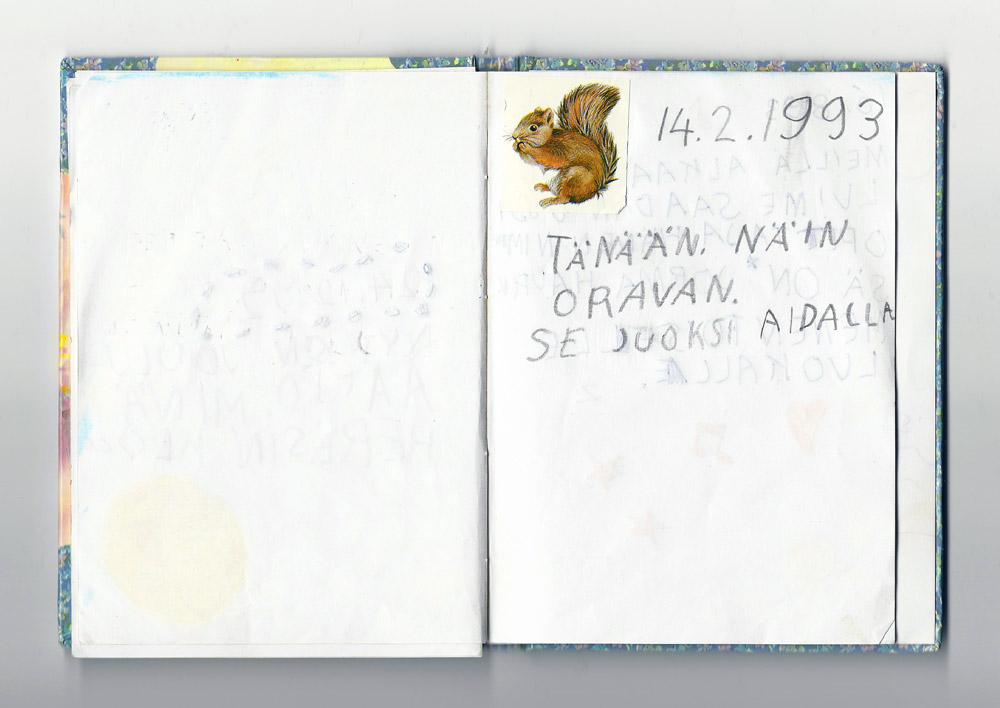 14.2.1993
TÄNÄÄN. NÄIN
ORAVAN.
SE JUOKSI AIDALLA